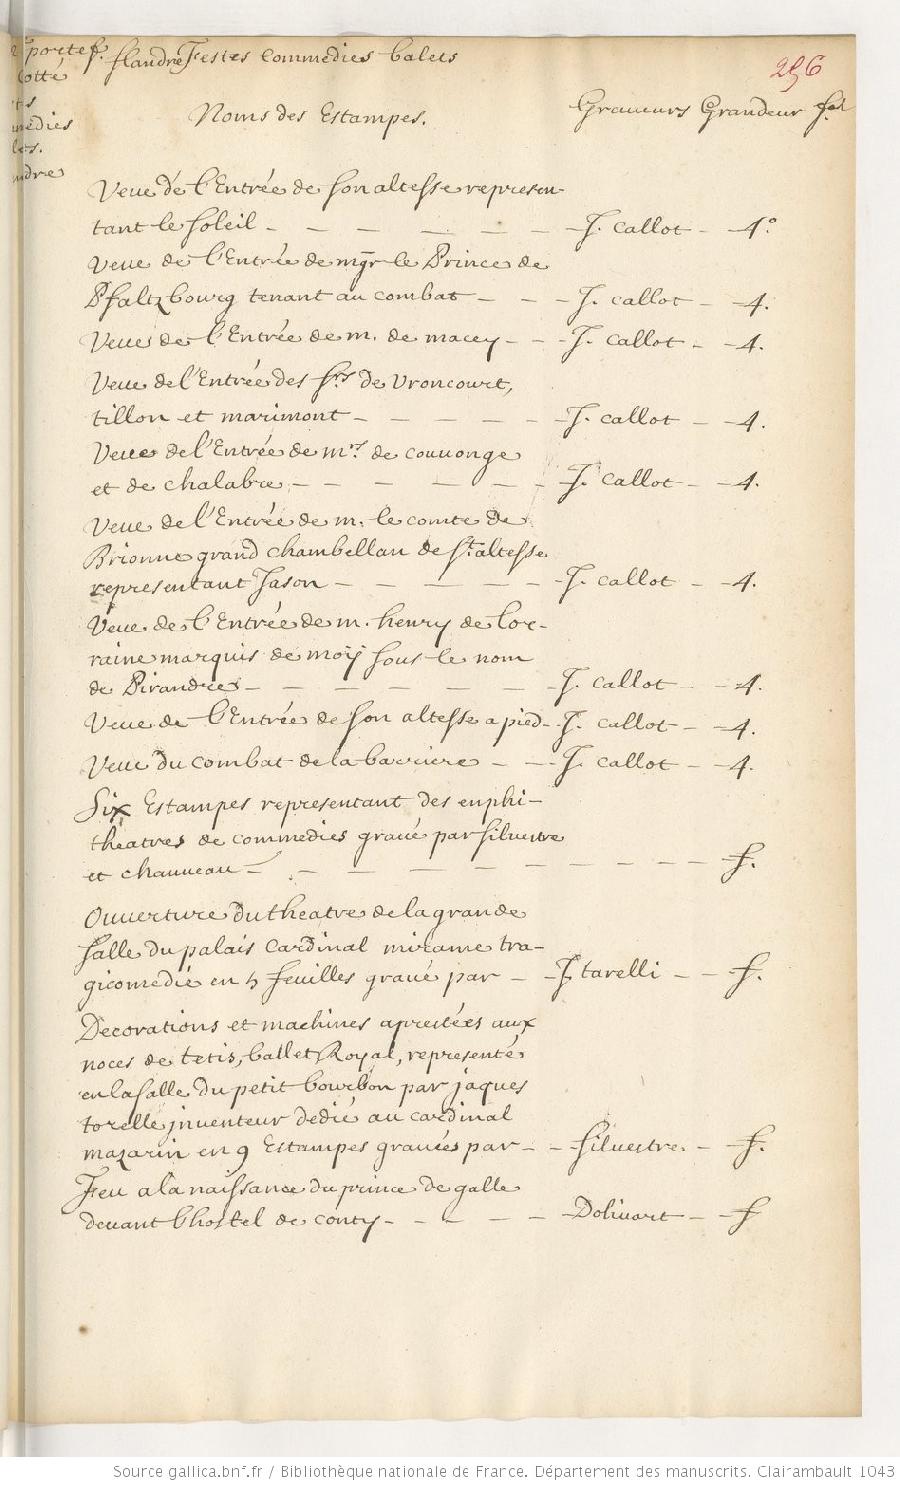 portef. flandre Festes Commedies balets
cotté
256
medies
lets.
ndre
Noms des Estampes. Graveurs Grandeur
Veue de l'Entrée de son altesse represen-
tant le soleil - - - - - - J. Callot - 4°
Veue de l'Entrée de mgr le Prince de
Pfaltzbourg tenant au combat - - - J. Callot - 4.
Veue de l'Entrée de m. de macey - - J. Callot - 4.
Veue de l'Entrée des Srs de Vroncourt,
tillon et marimont - - - - - J. Callot - 4.
Veue de l'Entrée de mrs. de couuonge
et de chalabre - - - - - - J. Callot - 4.
Veue de l'Entrée de m. le comte de
Brionne grand chambellan de St. altesse
representant Jason - - - - - J. Callot - 4.
Veue de l'Entrée de m. henry de lor-
raine marquis de moÿ sous le nom
de Pirandre - - - - - - J. Callot - 4.
Veue de l'Entrée de son altesse a pied - J. Callot - 4.
Veue du combat de la barriere - - J. Callot - 4.
Six Estampes representant des enphi-
theatres de commedies gravé par silvestre
et chauueau - - - - - - - - - f.
Ouuerture du theatre de la grande
salle du palais Cardinal mirame tra-
gicomedie en 5 feuilles gravé par - J. tarelli - - f.
Decorations et machines aprestées aux
noces de tetis, ballet Royal, representé
en la salle du petit bourbon par jaques
torelle jnuenteur dedié au cardinal
mazarin en 9 Estampes gravées par - - silvestre. - f.
Feu a la naissance du prince de galle
deuant l'hostel de conty - - - - - Doliuart - f
Source gallica.bnf.fr / Bibliothèque nationale de France. Département des manuscrits. Clairambault 1043